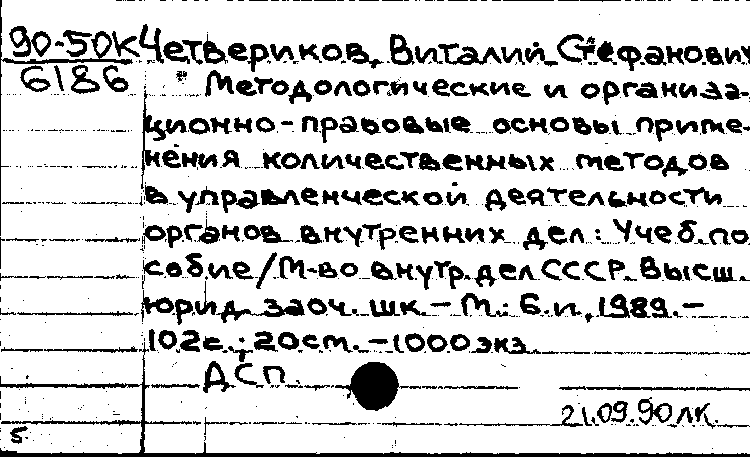 90-50К Четвериков, Виталий Стефанович
6186 Методологические и организа-
ционно-правовые основы приме-
нения количественных методов
в управленческой деятельности
органов внутренних дел: Учеб. по
собие/М-во внутр. дел СССР. Высш.
юрид. заоч. шк. — М.: Б.и., 1989. —
102с.; 20см. — 1000 экз.
ДСП.
21.09.90 ЛК.
5